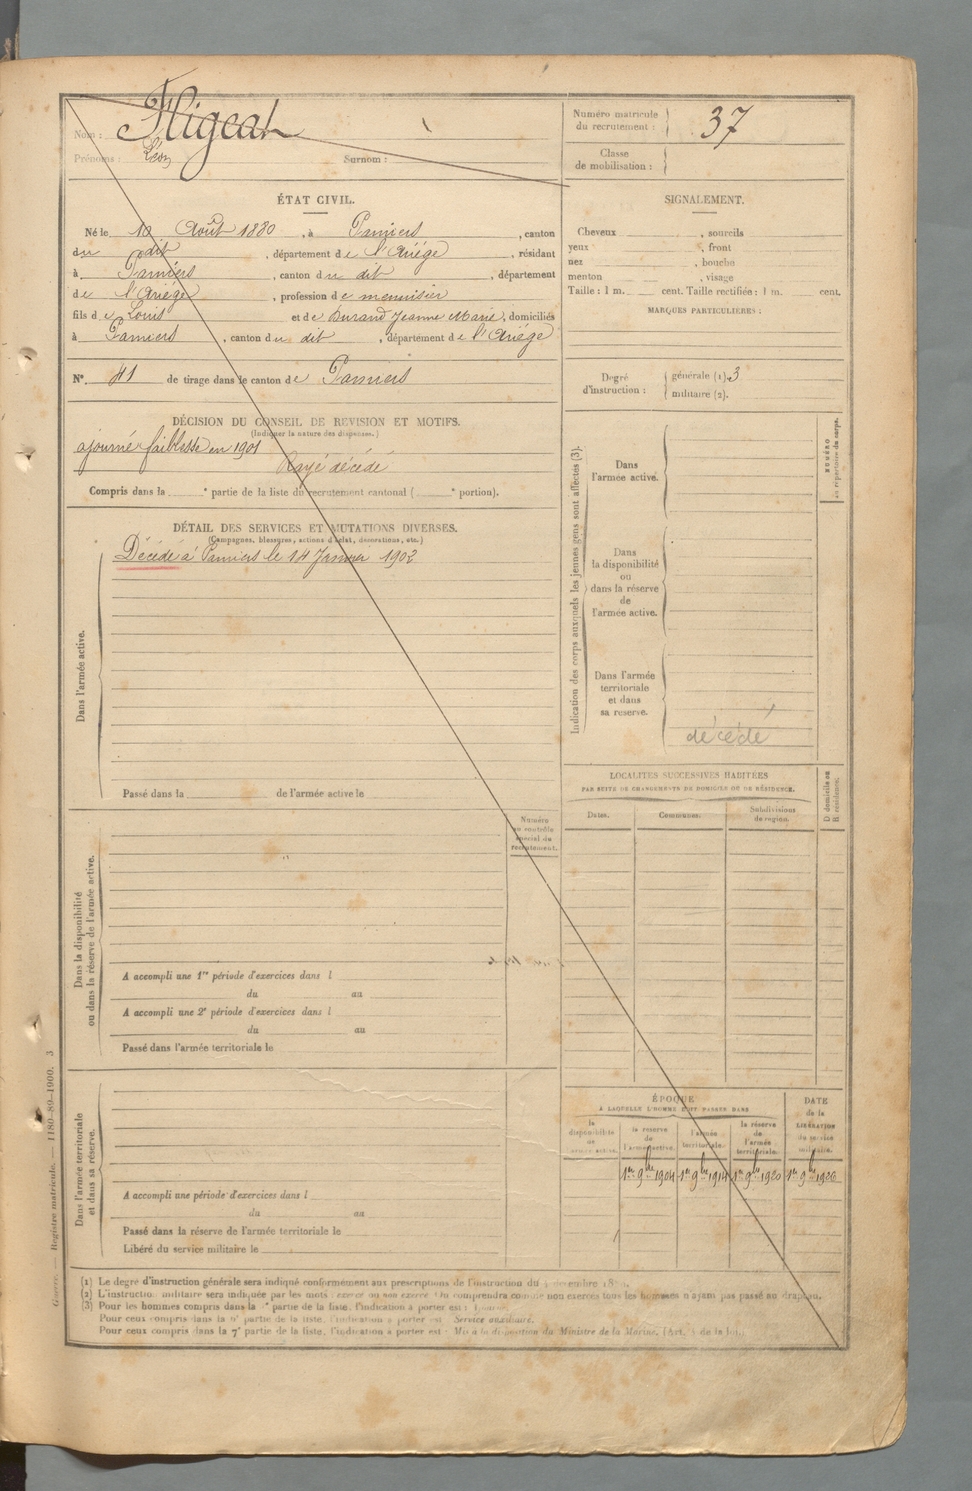 Nom : Fligeat
Prénoms : Léon Surnom :
Numéro matricule du recrutement : 37
Classe de mobilisation :
ÉTAT CIVIL.
Né le 10 Août 1880, à Pamiers, canton
du dit, département de l'Ariège, résidant
à Pamiers, canton du dit, département
de l'Ariège, profession de menuisier
fils de Louis et de Durand Jeanne Marie, domiciliés
à Pamiers, canton du dit, département de l'Ariège
N° 41 de tirage dans le canton de Pamiers
DÉCISION DU CONSEIL DE REVISION ET MOTIFS.
(Indiquer la nature des dispenses.)
ajourné faiblesse en 1901
Rayé décédé
Compris dans la e partie de la liste du recrutement cantonal ( e portion).
DÉTAIL DES SERVICES ET MUTATIONS DIVERSES.
(Campagnes, blessures, actions d'éclat, décorations, etc.)
Décédé à Pamiers le 14 Janvier 1902
Dans l'armée active.
Passé dans la de l'armée active le
Numéro au contrôle spécial du recrutement.
Dans la disponibilité
ou dans la réserve de l'armée active.
A accompli une 1re période d'exercices dans l
du au
A accompli une 2e période d'exercices dans l
du au
Passé dans l'armée territoriale le
Dans l'armée territoriale
et dans sa réserve.
A accompli une période d'exercices dans l
du au
Passé dans la réserve de l'armée territoriale le
Libéré du service militaire le
SIGNALEMENT.
Cheveux , sourcils
yeux , front
nez , bouche
menton , visage
Taille : 1 m. cent. Taille rectifiée : 1 m. cent.
MARQUES PARTICULIÈRES :
Degré d'instruction :
générale (1). 3
militaire (2).
Indication des corps auxquels les jeunes gens sont affectés (3).
NUMÉRO
au répertoire du corps.
Dans
l'armée active.
Dans
la disponibilité
ou
dans la réserve
de
l'armée active.
Dans l'armée
territoriale
et dans
sa réserve.
décédé
LOCALITÉS SUCCESSIVES HABITÉES
PAR SUITE DE CHANGEMENTS DE DOMICILE OU DE RÉSIDENCE.
D domicile ou
R résidence.
Dates. Communes. Subdivisions de région.
ÉPOQUE
À LAQUELLE L'HOMME DOIT PASSER DANS
DATE
de la
LIBÉRATION
du service
militaire.
la disponibilité de l'armée active.
la réserve de l'armée active.
l'armée territoriale.
la réserve de l'armée territoriale.
1er 9bre 1904 1er 9bre 1914 1er 9bre 1920 1er 9bre 1926
(1) Le degré d'instruction générale sera indiqué conformément aux prescriptions de l'instruction du
(2) L'instruction militaire sera indiquée par les mots : exercé ou non exercé. On comprendra comme non exercés tous les hommes n'ayant pas passé au drapeau.
(3) Pour les hommes compris dans la partie de la liste, l'indication à porter est :
Pour ceux compris dans la 6e partie de la liste, l'indication à porter est : Service auxiliaire.
Pour ceux compris dans la 7e partie de la liste, l'indication à porter est : Mis à la disposition du Ministre de la Marine.
Guerre. — Registre matricule. — 1180-89-1900. 3